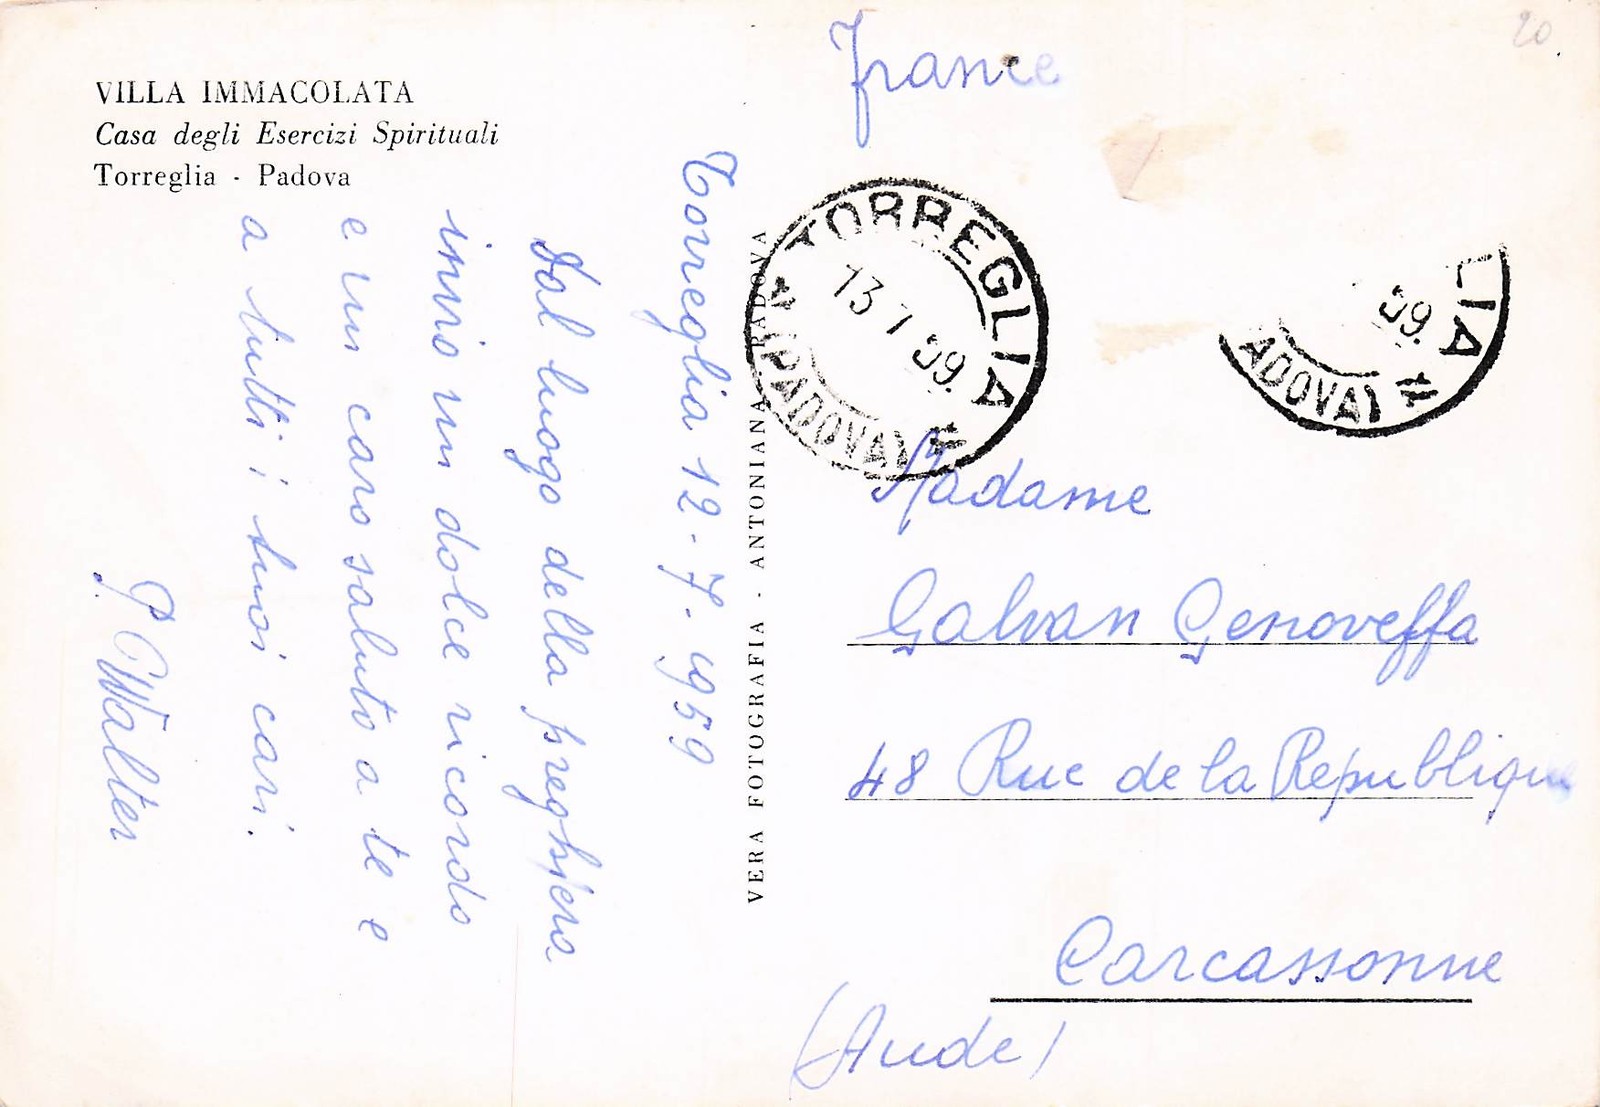 VILLA IMMACOLATA
Casa degli Esercizi Spirituali
Torreglia - Padova
Torreglia 12-7-1959
Dal luogo della preghiera
invio un dolce ricordo
e un caro saluto a te e
a tutti i tuoi cari.
P. Walter
VERA FOTOGRAFIA - ANTONIANA PADOVA
20
France
TORREGLIA
13 7 59.
(PADOVA)
LIA
59.
ADOVA)
Madame
Galvan Genoveffa
48 Rue de la Republique
Carcassonne
(Aude)